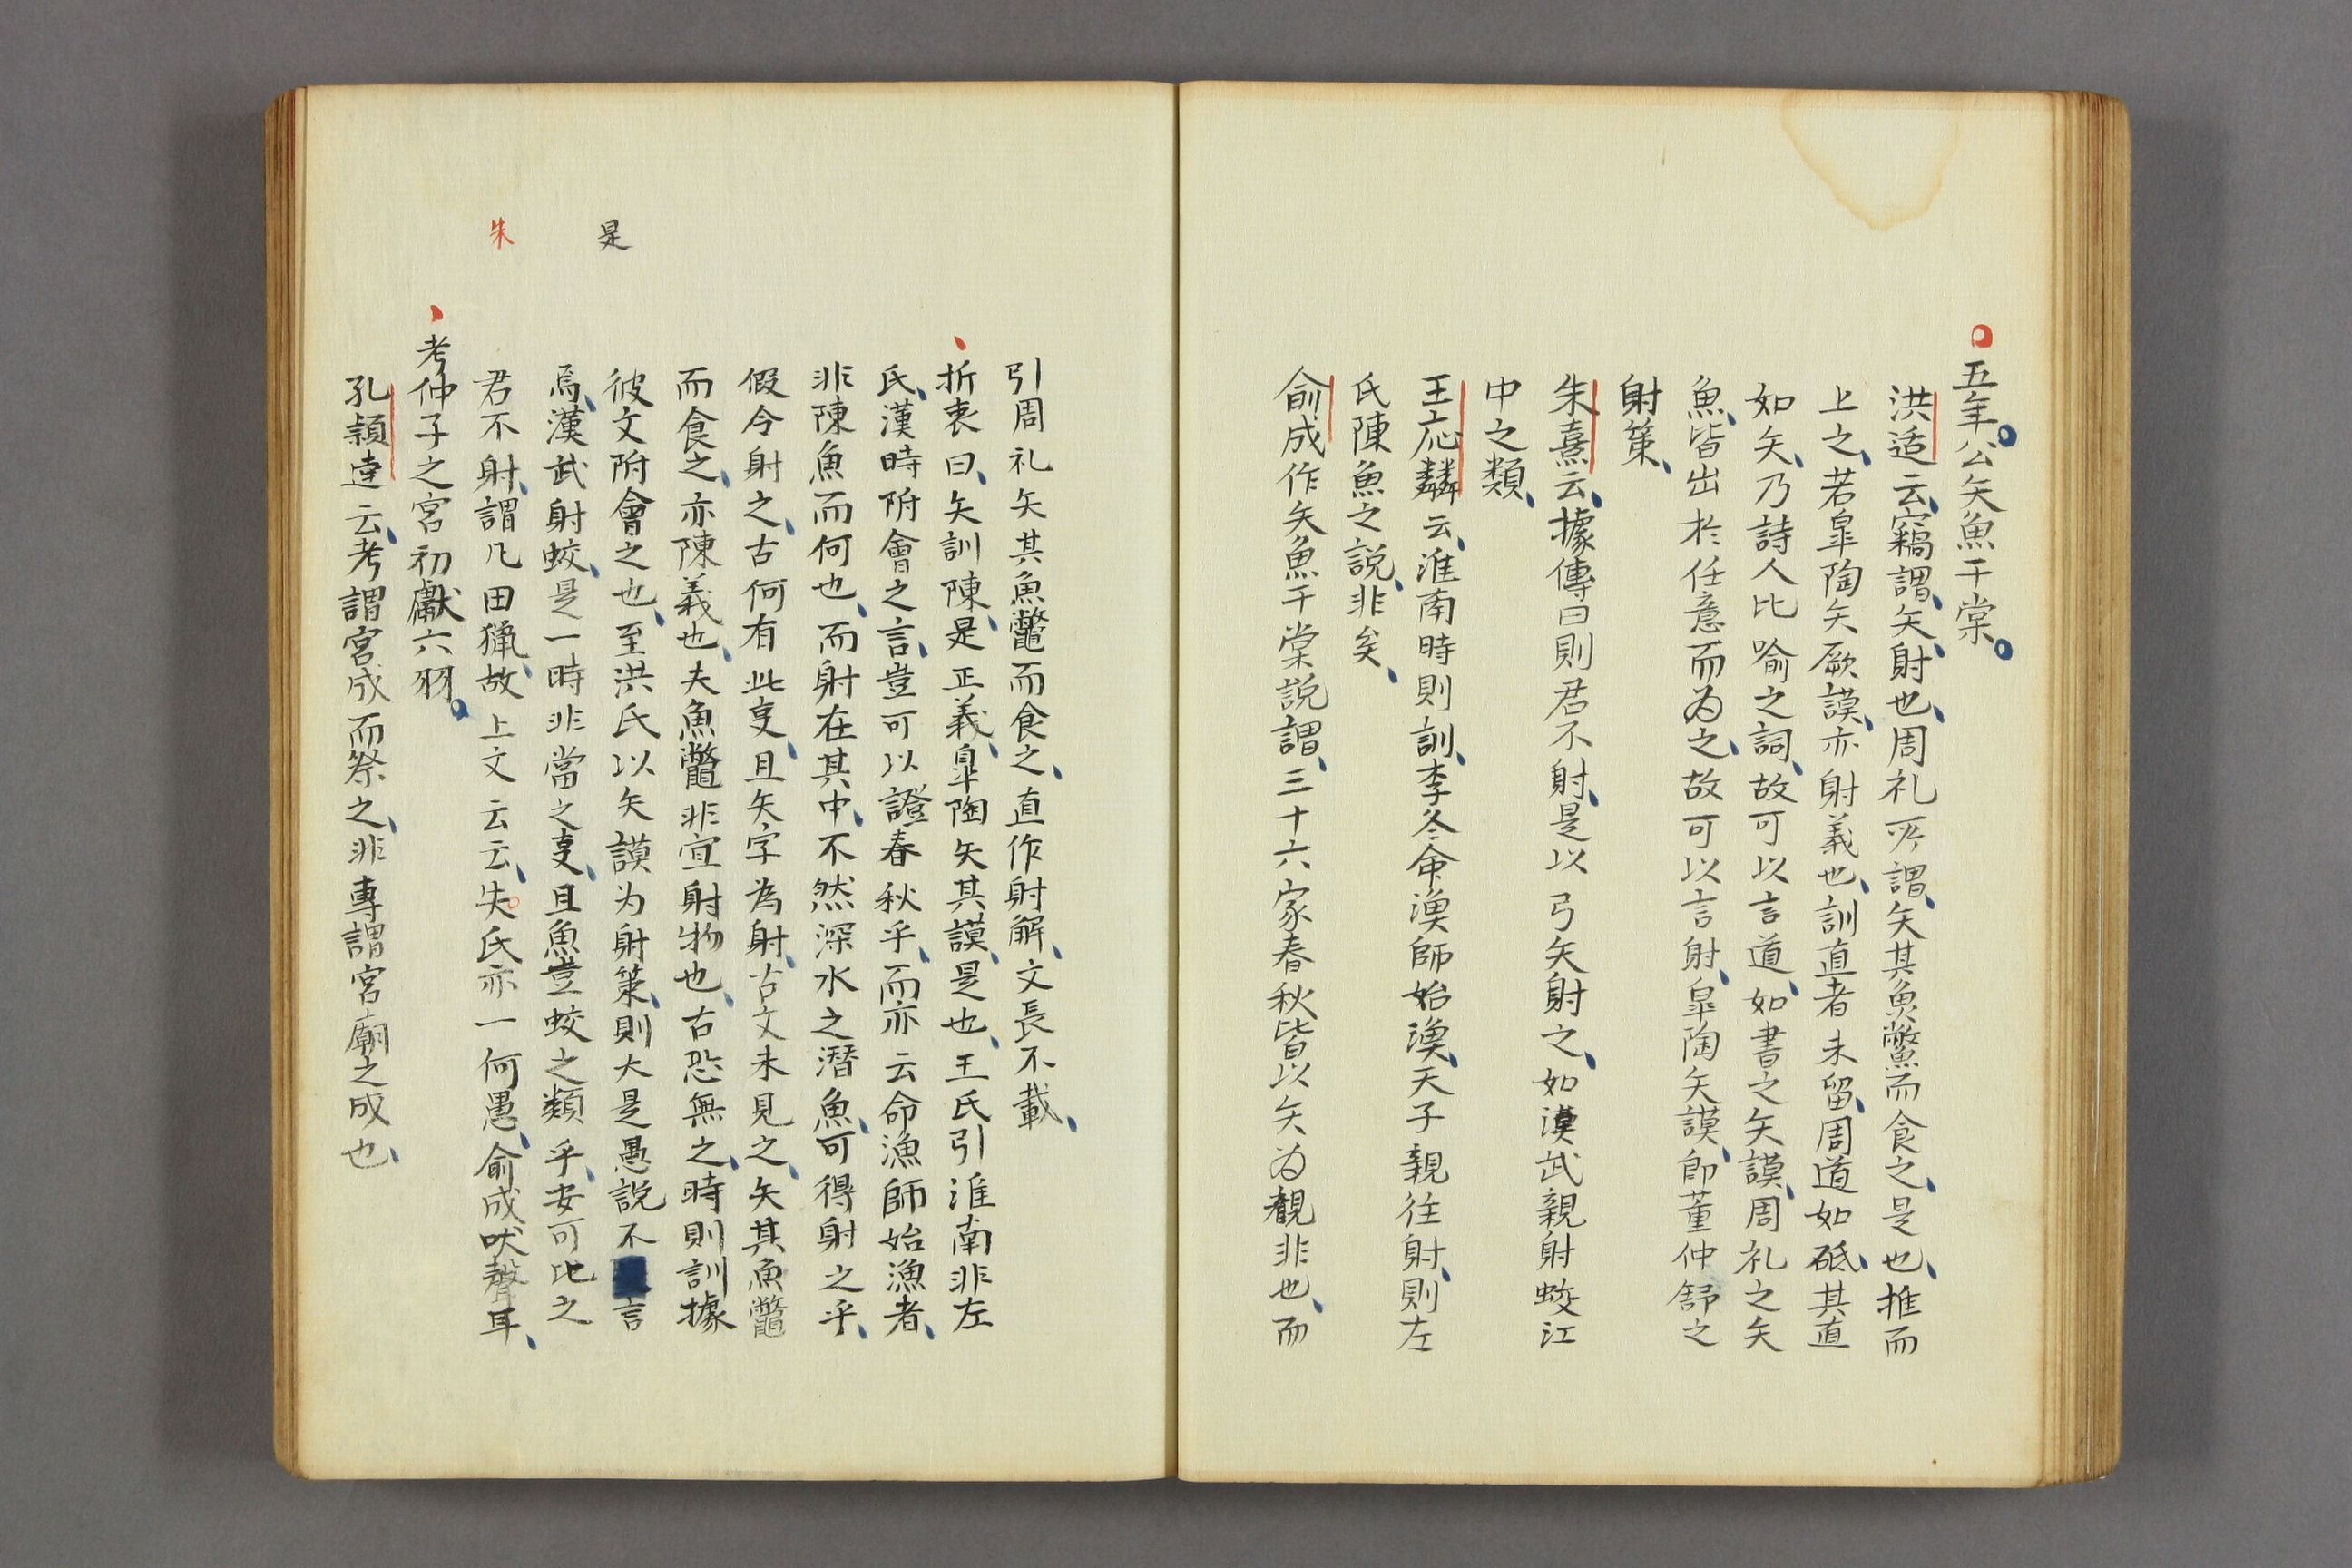 五年公矢魚于棠
洪适云竊謂矢射也周礼所謂矢其魚鱉而食之是也推而
上之若皐陶矢厥謨亦射義也訓直者未留周道如砥其直
如矢乃詩人比喻之詞故可以言道如書之矢謨周礼之矢
魚皆出於任意而為之故可以言射皐陶矢謨即董仲舒之
射策
朱熹云據傳曰則君不射是以弓矢射之如漢武親射蛟江
中之類
王応麟云淮南時則訓季冬命漁師始漁天子親往射則左
氏陳魚之説非矣
俞成作矢魚于棠説謂三十六家春秋皆以矢為観非也而
引周礼矢其魚鼈而食之直作射解文長不載
折衷曰矢訓陳是正義皐陶矢其謨是也王氏引淮南非左
氏漢時附會之言豈可以證春秋乎而亦云命漁師始漁者
非陳魚而何也而射在其中不然深水之潛魚可得射之乎
假今射之古何有此事且矢字為射古文未見之矢其魚鼈
而食之亦陳義也夫魚鼈非宜射物也古恐無之時則訓據
彼文附會之也至洪氏以矢謨为射策則大是愚説不言
是
焉漢武射蛟是一時非當之事且魚豈蛟之類乎安可比之
君不射謂凡田獵故上文云云失氏亦一何愚俞成吠聲耳
朱
考仲子之宮初獻六羽
孔穎達云考謂宮成而祭之非專謂宮廟之成也